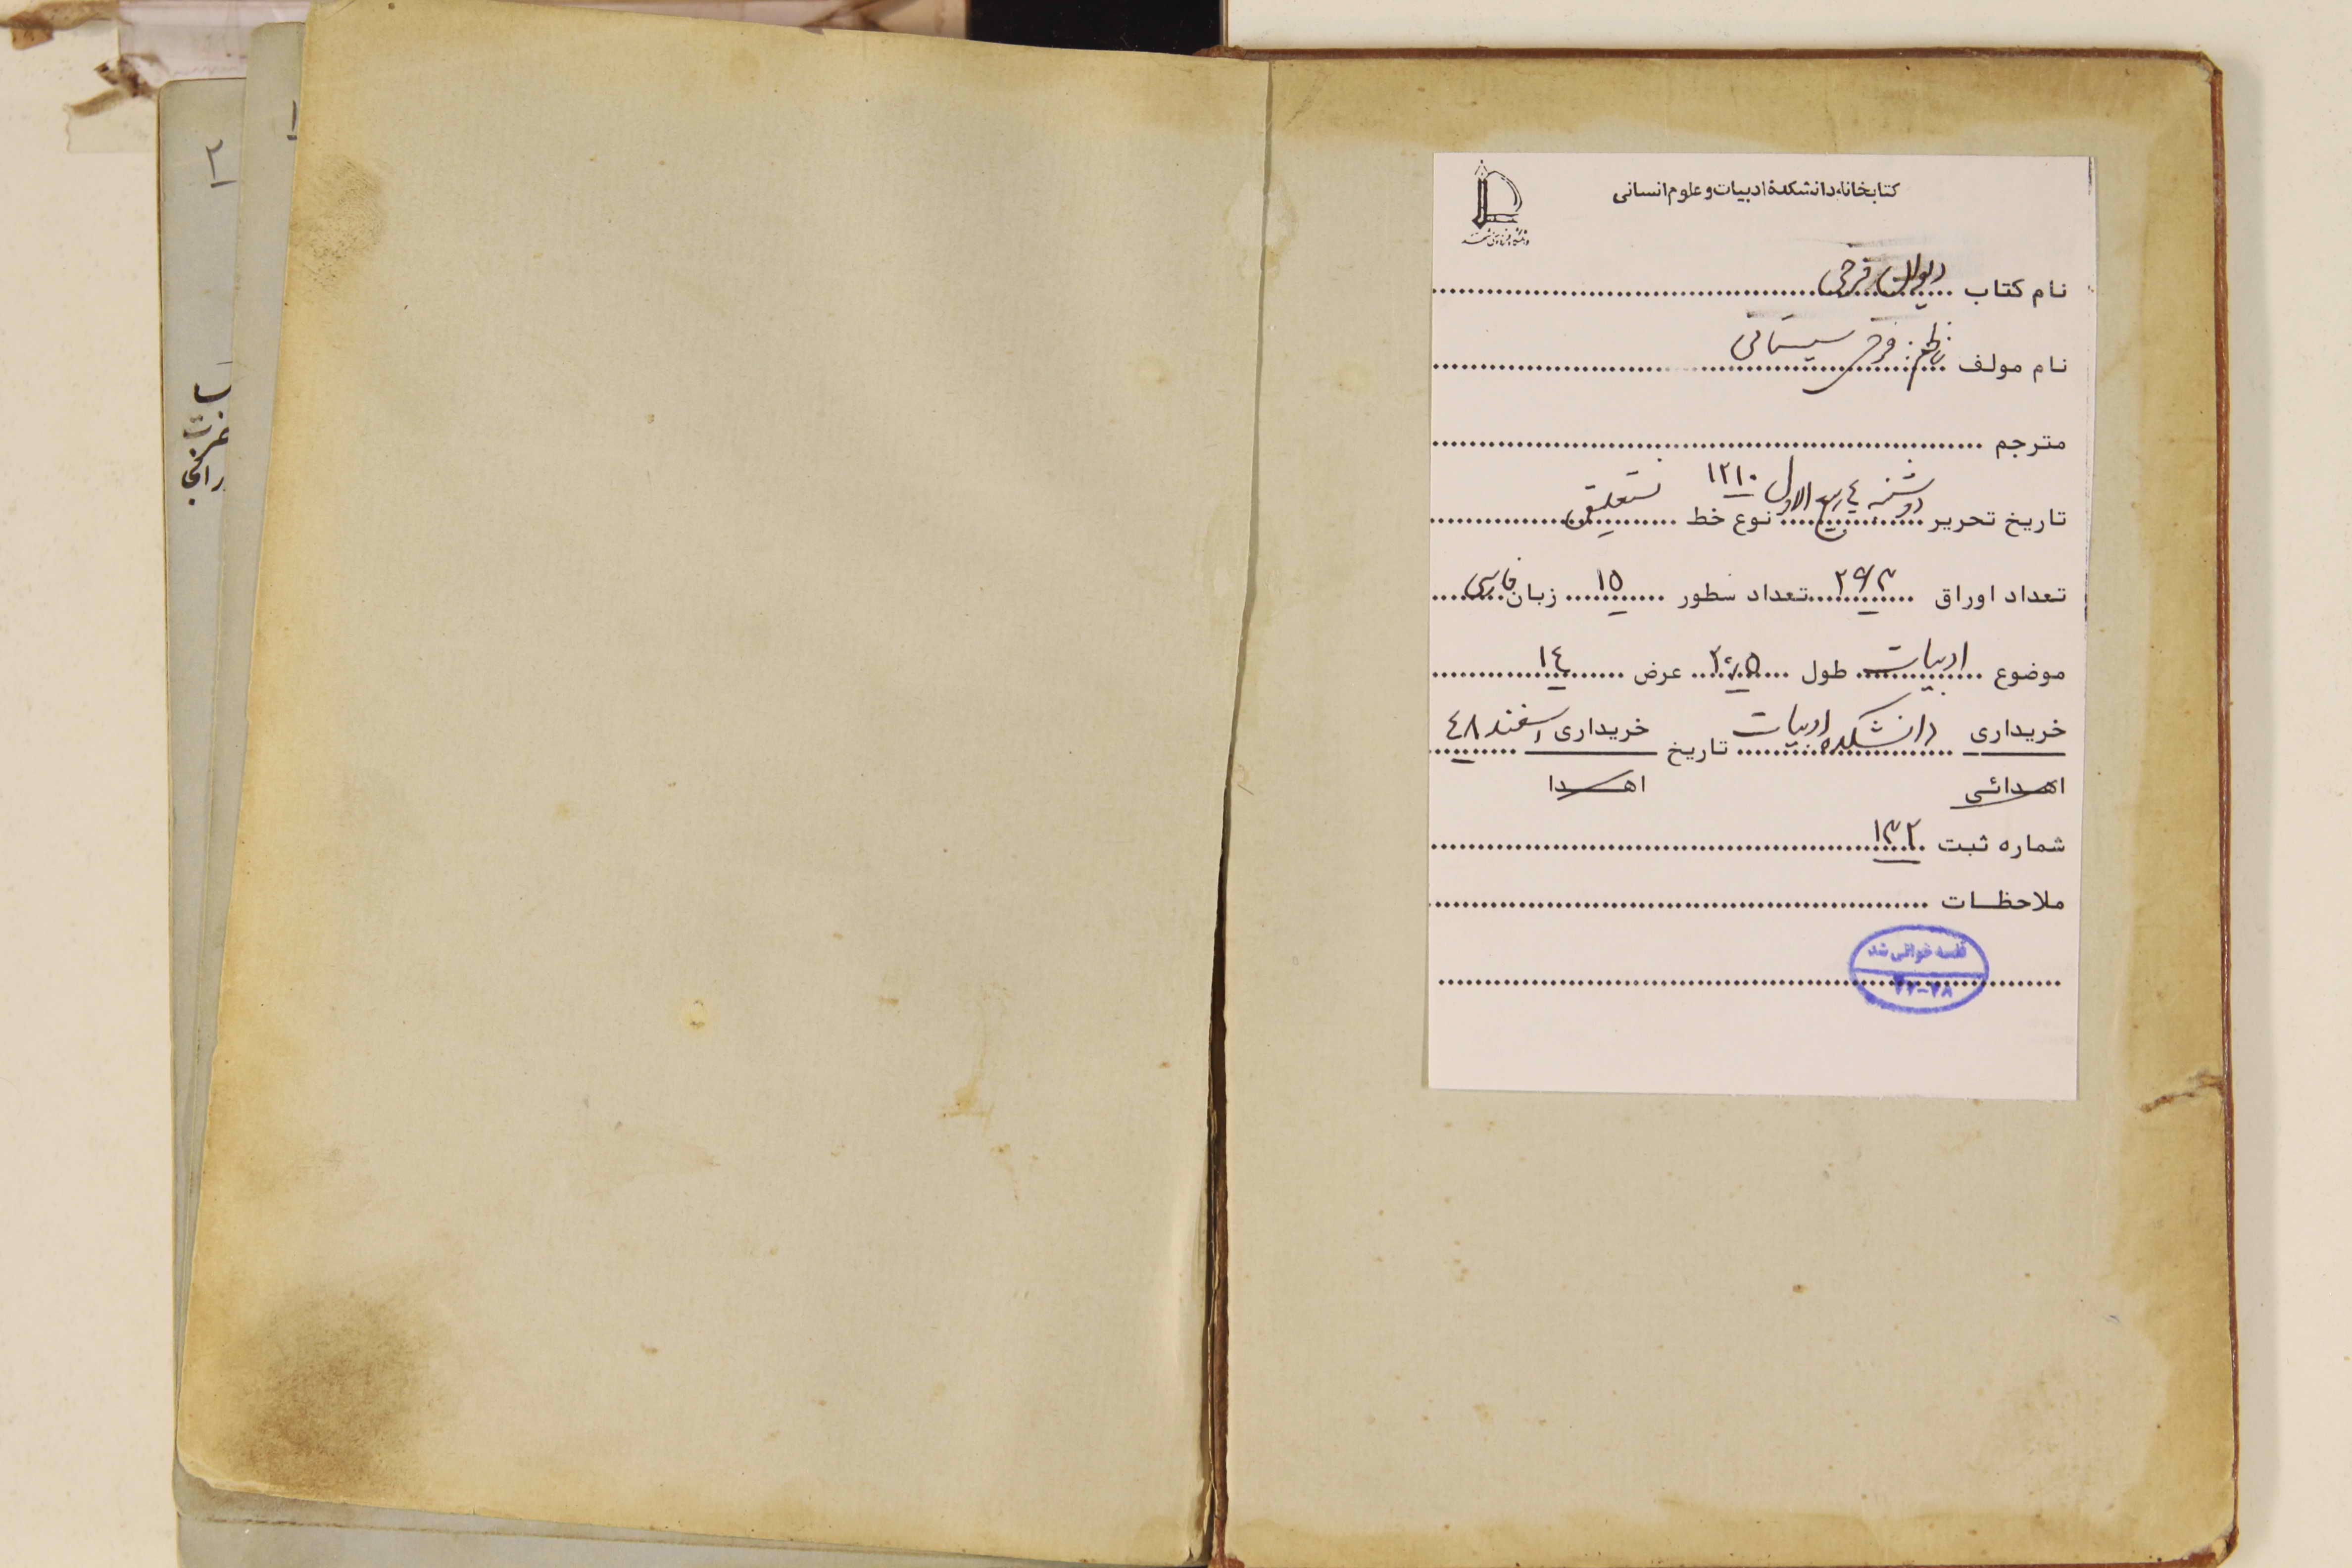 کتابخانه دانشکدهٔ ادبیات و علوم انسانی
دانشگاه فردوسی مشهد
نام کتاب دیوان فرخی
نام مولف ناظم: فرخی سیستانی
مترجم
تاریخ تحریر دوشنبه ٤ ربیع الاول ۱۲۱۰ نوع خط نستعلیق
تعداد اوراق ۲۹۳ تعداد سطور ۱۵ زبان فارسی
موضوع ادبیات طول ۲۰/۵ عرض ۱٤
خریداری دانشکده ادبیات تاریخ خریداری اسفند ٤۸
اهدائی اهدا
شماره ثبت ۱۳۲
ملاحظات
قفسه خوانی شد
۲
۱